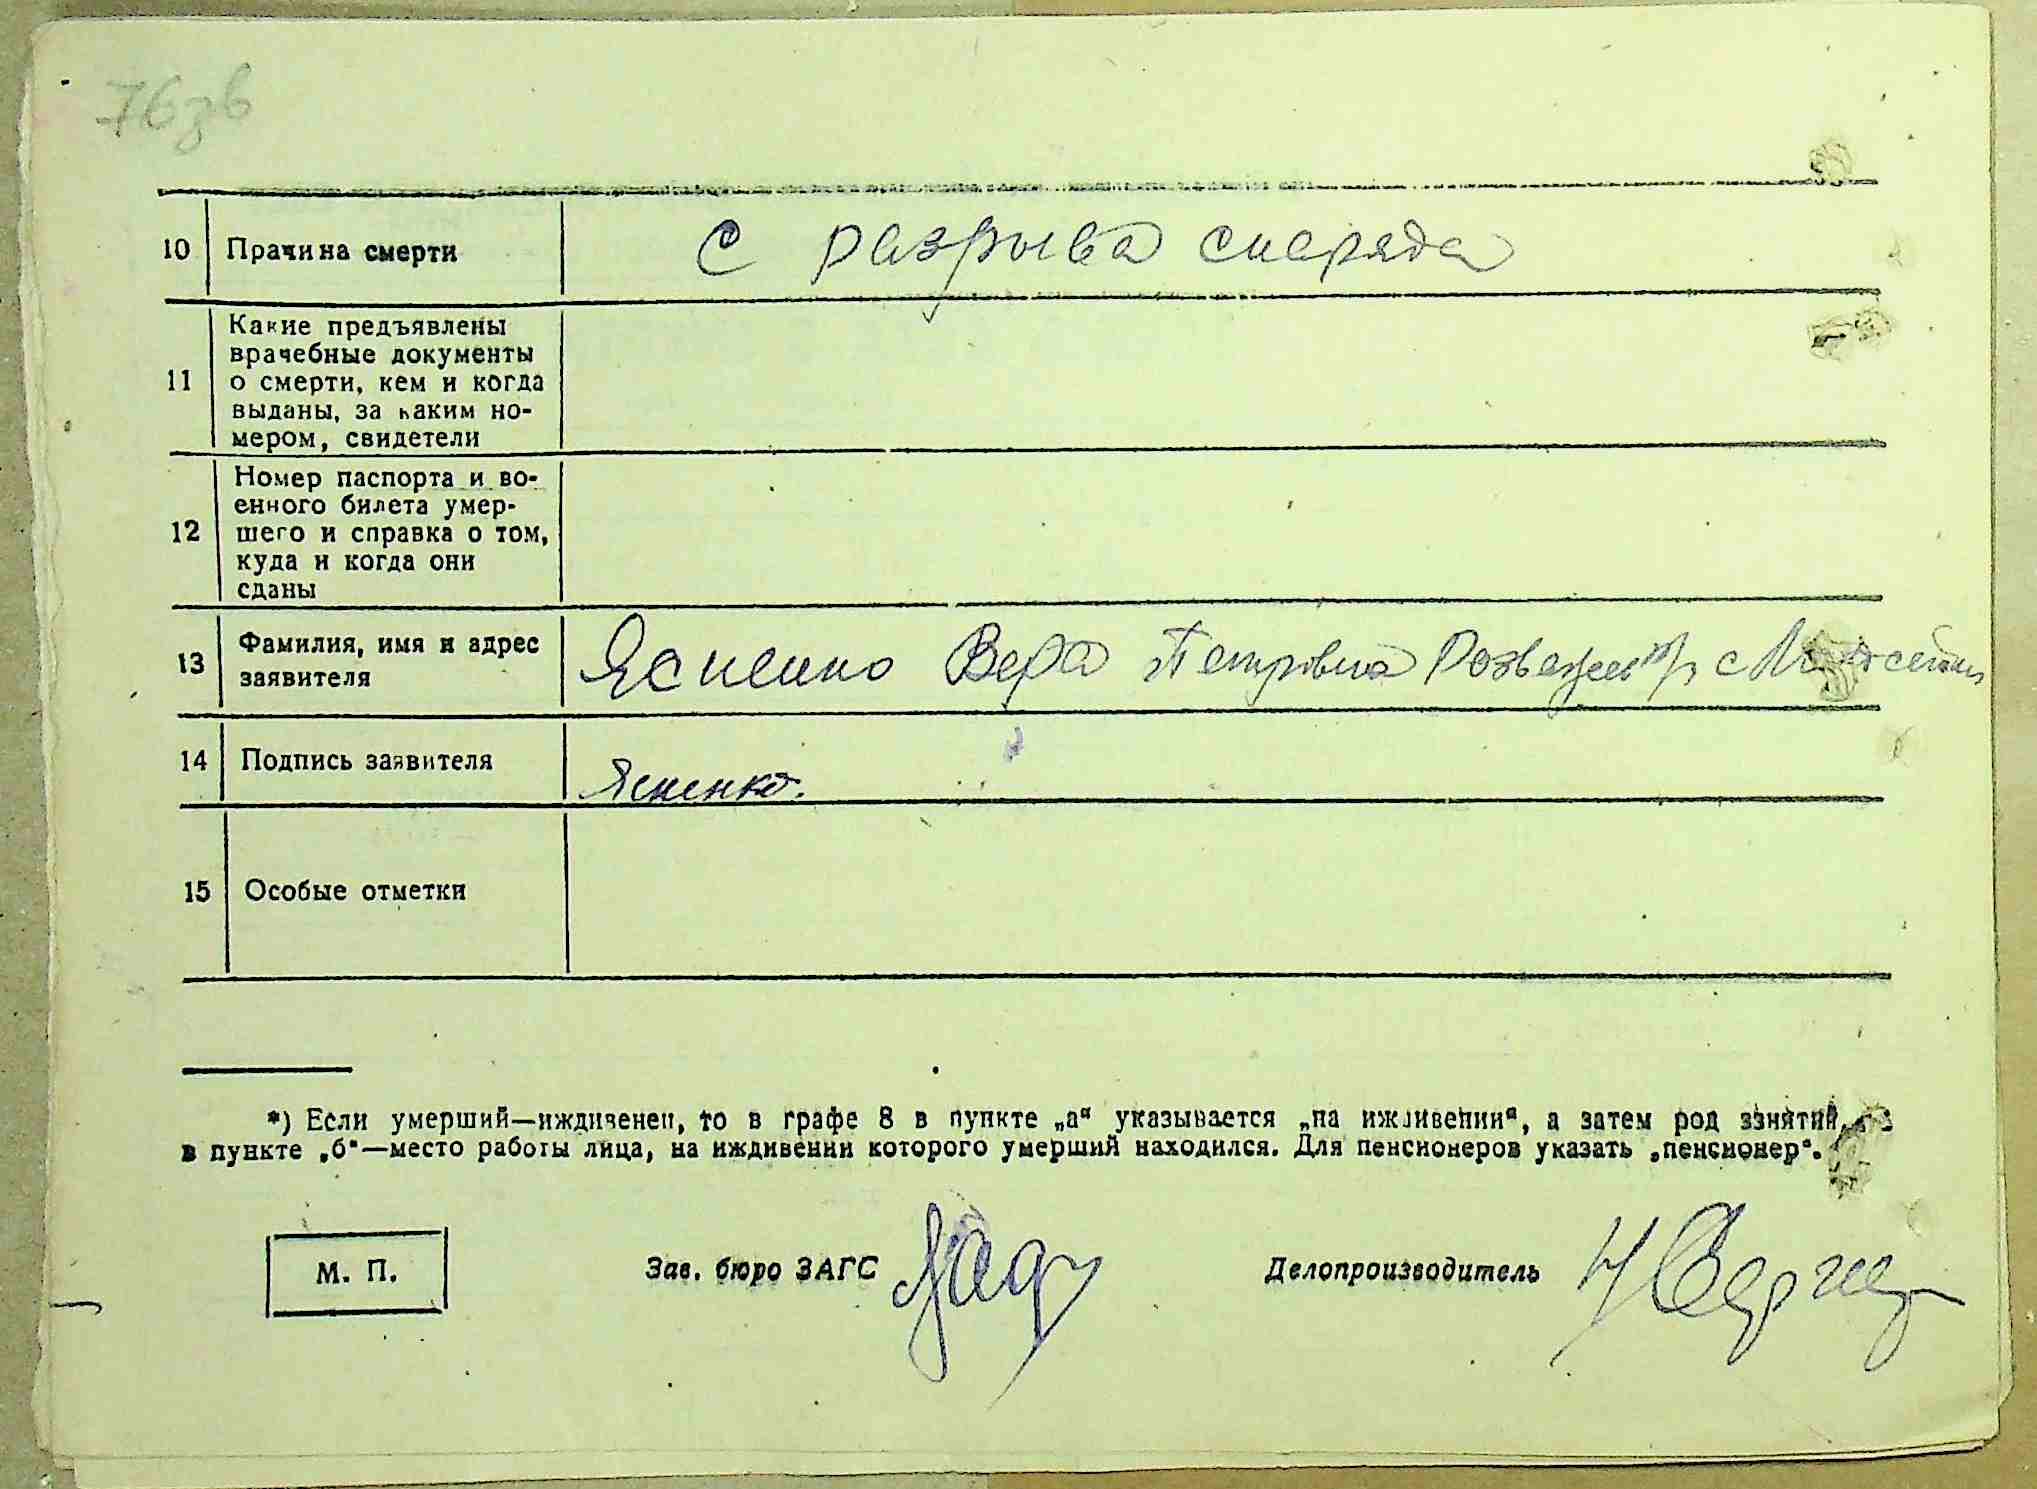 76зв
10 Причина смерти с разрыва снаряда
11 Какие предъявлены
врачебные документы
о смерти, кем и когда
выданы, за каким но-
мером, свидетели
12 Номер паспорта и во-
енного билета умер-
шего и справка о том,
куда и когда они
сданы
13 Фамилия, имя и адрес
заявителя Ясненко Вера Петровна Розважев р с
14 Подпись заявителя Ясненко.
15 Особые отметки
*) Если умерший—иждивенец, то в графе 8 в пункте „а“ указывается „на иждивении“, а затем род занятий,
в пункте „б“—место работы лица, на иждивении которого умерший находился. Для пенсионеров указать „пенсионер“.
М. П. Зав. бюро ЗАГС Делопроизводитель